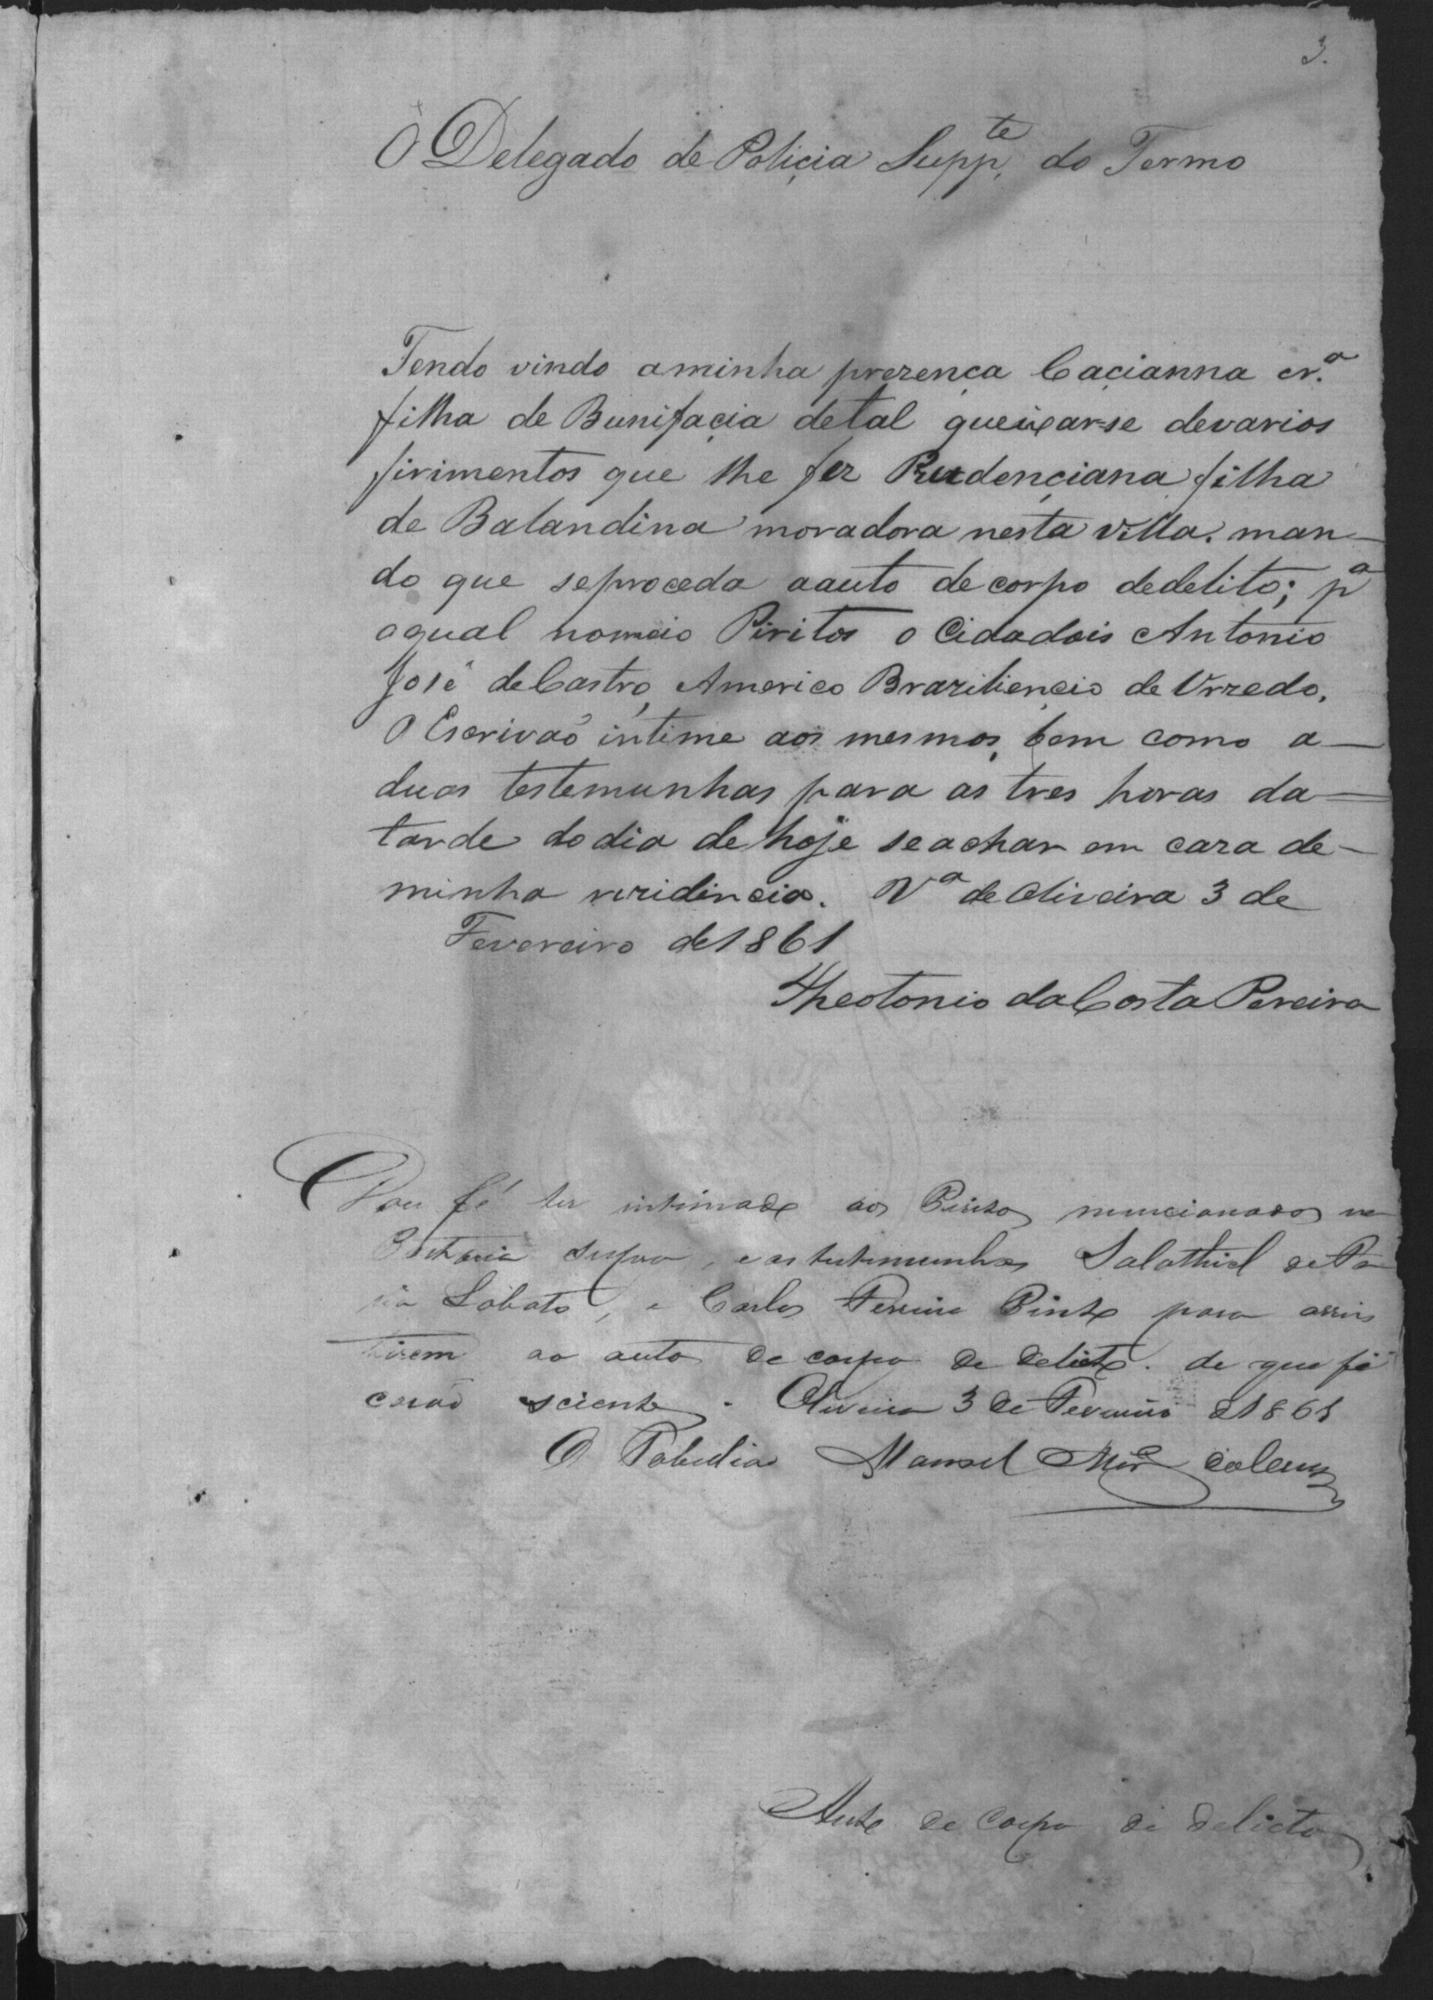 3.
O Delegado de Policia Supp.te do Termo
Tendo vindo aminha prezença Caçianna cr.ª
filha de Bunifaçia detal queixar-se devarios
firimentos que lhe fez Prudençiana filha
de Balandina moradora nesta villa. man-
do que seproceda aauto de corpo dedelito; pª
oqual nomeio Piritos o Cidadois Antonio
José deCastro, Americo Braziliencio de Urzedo,
O Escrivaõ intime aos mesmos, bem como a-
duas testemunhas para as tres horas da=
tarde dodia de hoje seachar em caza de-
minha rezidencia. Vª de Oliveira 3 de
Fevereiro de1861
Theotonio daCosta Pereira
Dou fé ter intimado aos Peritos mencionados na
Portaria supra, e as testemunhas Salathiel de Pa
Lobato, e Carlos Pereira Pinto para assis
tirem ao auto de corpo de delicto. de que fi
caraõ scientes. Oliveira 3 de Fevereiro d1861
O Tabelião Manoel
Auto de corpo de delicto